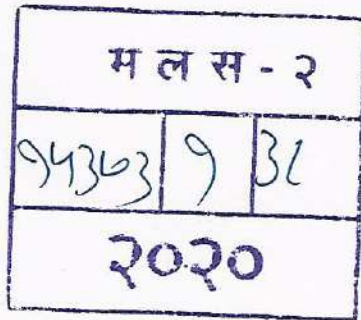 म ल स - २
१५३७३ १ ३८
२०२०